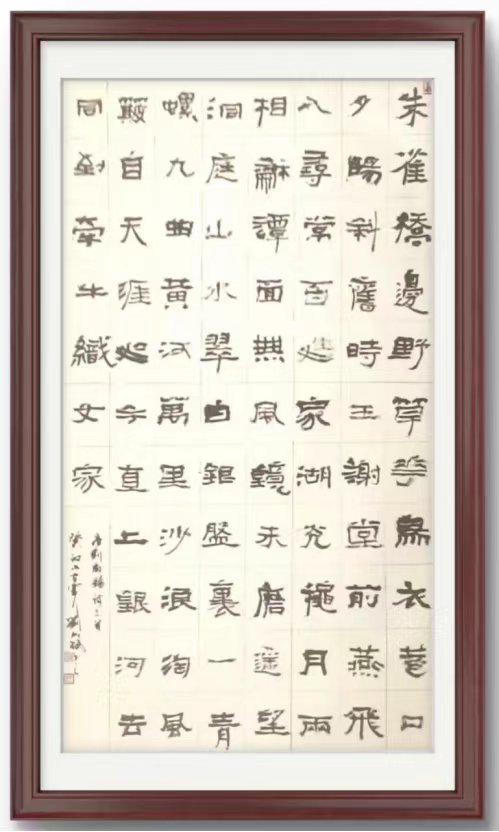 朱雀橋邊野草花烏衣巷口
夕陽斜舊時王謝堂前燕飛
入尋常百姓家湖光龝月兩
相龢潭面無風鏡未磨遥望
洞庭山水翠白銀盤裏一青
螺九曲黃河萬里沙浪淘風
簸自天涯如今直上銀河去
同到牽牛織女家
唐劉禹錫詩三首
癸卯